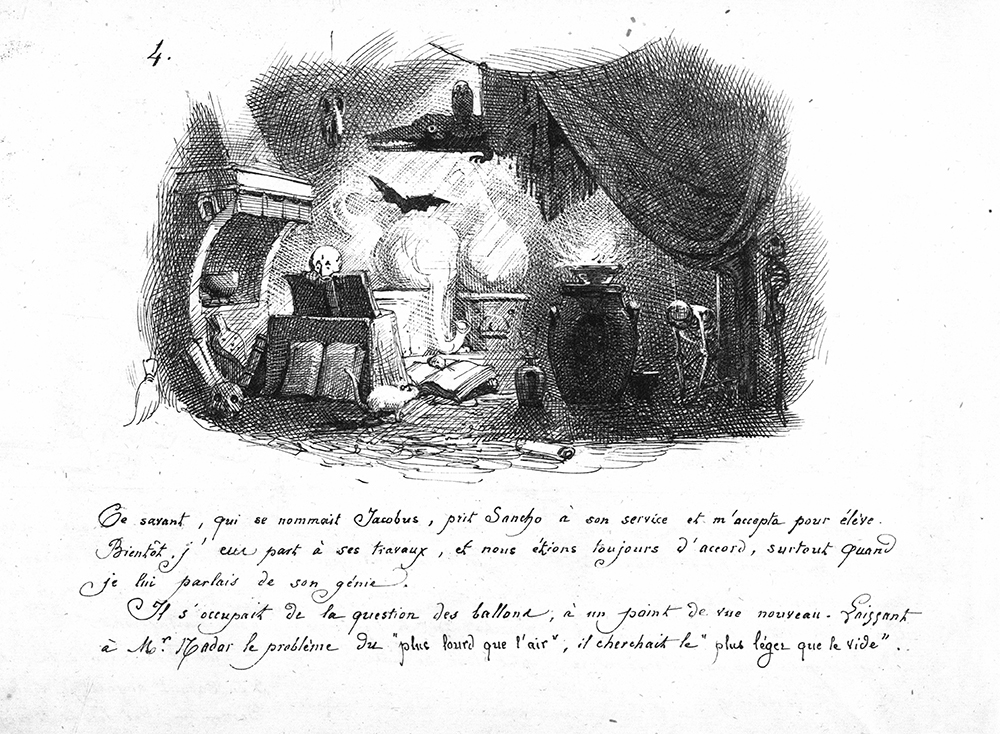 4.
Ce savant, qui se nommait Jacobus, prit Sancho à son service et m'accepta pour élève.
Bientôt, j'eus part à ses travaux, et nous étions toujours d'accord, surtout quand
je lui parlais de son génie.
Il s'occupait de la question des ballons, à un point de vue nouveau. Laissant
à Mr. Nadar le problème du "plus lourd que l'air", il cherchait le "plus léger que le vide".